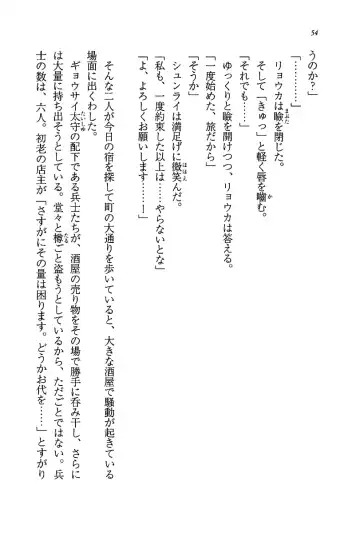 54
うのか？」
「………」
リョウカは瞼を閉じた。
そして「きゅっ」と軽く唇を噛む。
「それでも……」
ゆっくりと瞼を開けつつ、リョウカは答える。
「一度始めた、旅だから」
「そうか」
シュンライは満足げに微笑んだ。
「私も、一度約束した以上は……やらないとな」
「よ、よろしくお願いします……ー」
そんな二人が今日の宿を探して町の大通りを歩いていると、大きな酒屋で騒動が起きている
場面に出くわした。
ギョウサイ太守の配下である兵士たちが、酒屋の売り物をその場で勝手に呑み干し、さらに
は大量に持ち出そうとしている。堂々と樽ごと盗もうとしているから、ただごとではない。兵
士の数は、六人。初老の店主が「さすがにその量は困ります。どうかお代を……」とすがり